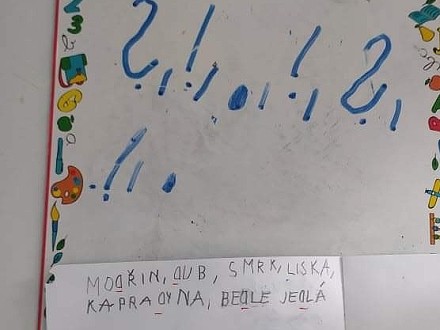 ? , ! , . , ! , ? ,
! , .
MODŘIN, DUB, SMRK, LISKA,
KAPRADYNA, BEDLE JEDLÁ